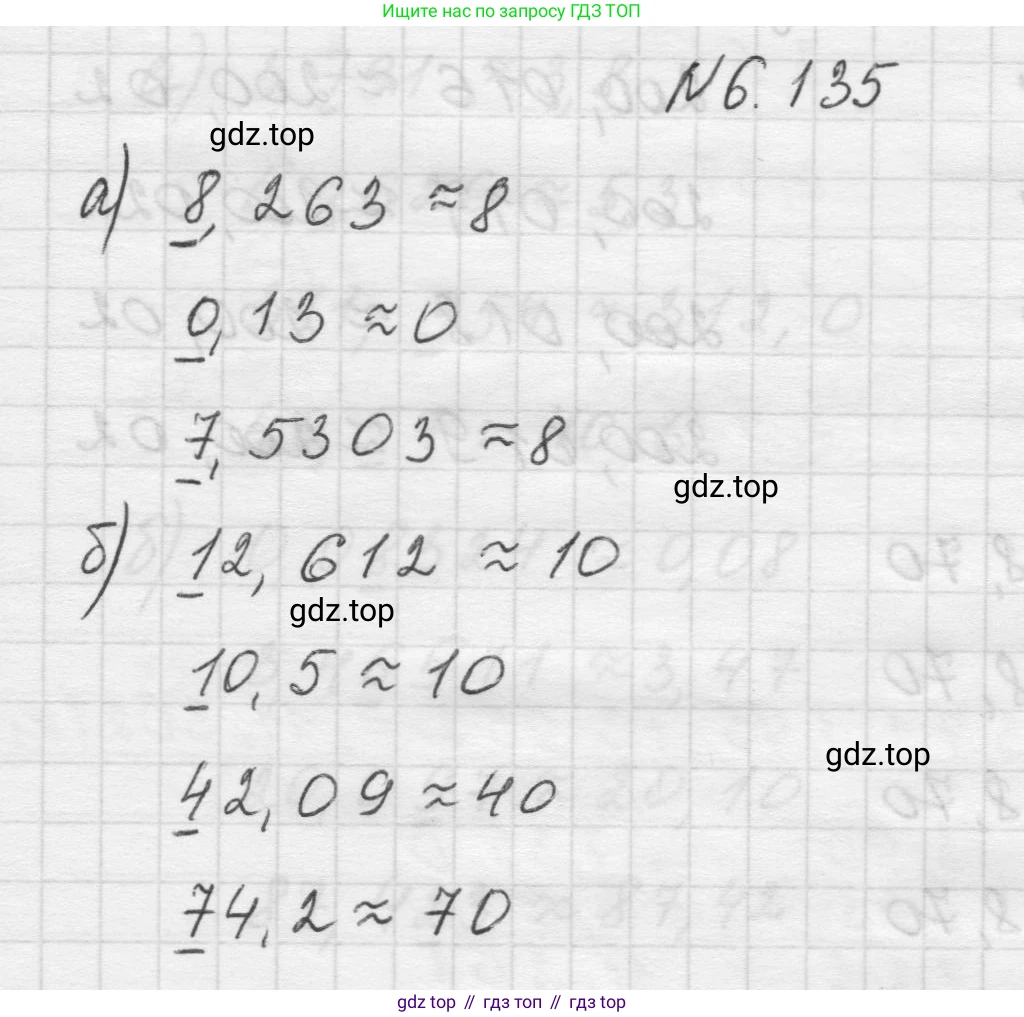 Ищите нас по запросу ГДЗ ТОП
№ 6.135
gdz.top
а) 8,263 ≈ 8
0,13 ≈ 0
7,5303 ≈ 8
gdz.top
б) 12,612 ≈ 10
gdz.top
10,5 ≈ 10
gdz.top
42,09 ≈ 40
74,2 ≈ 70
gdz top // гдз топ // gdz top